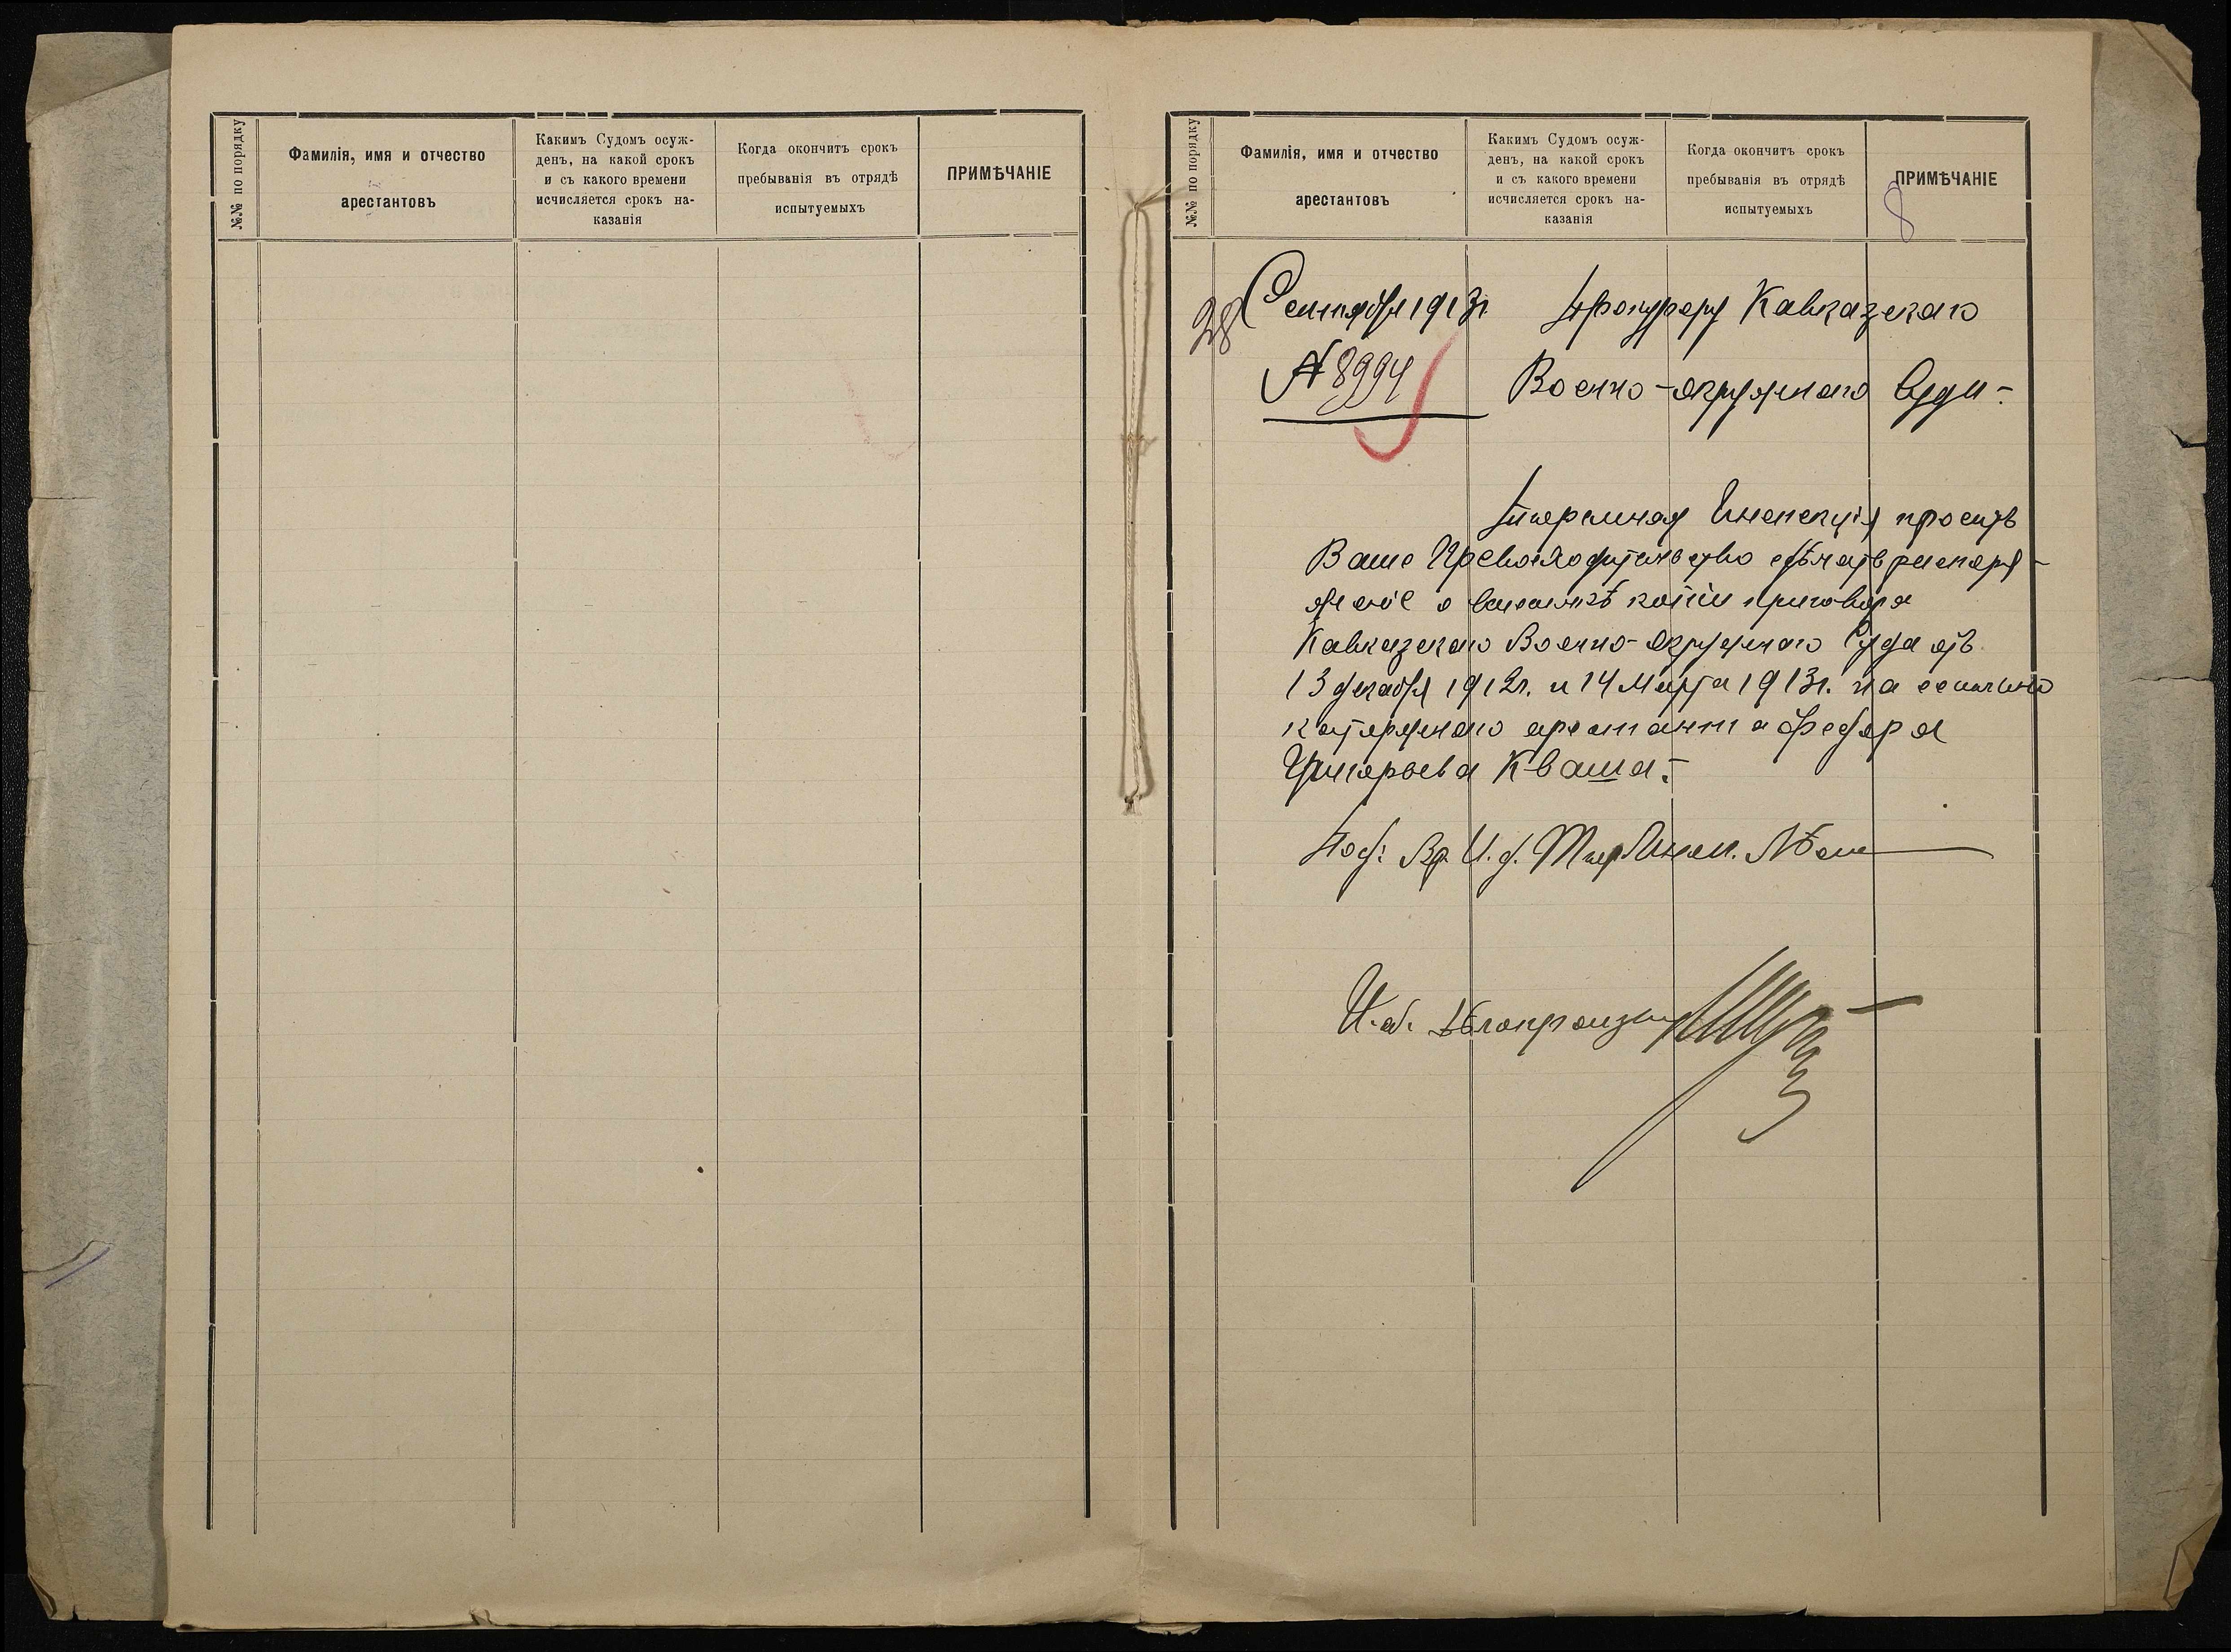 №№ по порядку
Фамилія, имя и отчество
арестантовъ
Какимъ Судомъ осуж-
денъ, на какой срокъ
и съ какого времени
исчисляется срокъ на-
казанія
Когда окончитъ срокъ
пребыванія въ отрядѣ
испытуемыхъ
ПРИМѢЧАНІЕ
№№ по порядку
Фамилія, имя и отчество
арестантовъ
Какимъ Судомъ осуж-
денъ, на какой срокъ
и съ какого времени
исчисляется срокъ на-
казанія
Когда окончитъ срокъ
пребыванія въ отрядѣ
испытуемыхъ
ПРИМѢЧАНІЕ
8
28 Сентября 1913г.
№ 8994
Прокурору Кавказскаго
Военно-окружнаго Суда.
Тюремная Инспекція проситъ
Ваше Превосходительство сдѣлать распоря-
женіе о высылкѣ копіи приговора
Кавказскаго Военно-Окружнаго Суда отъ
13 декабря 1912г. и 14 Марта 1913г. на ссыльно
каторжнаго арестанта Федора
Григорьева Кваша.
Под: Вр. И. д. Тюр. Инсп.
И. д. Дѣлопроизв.